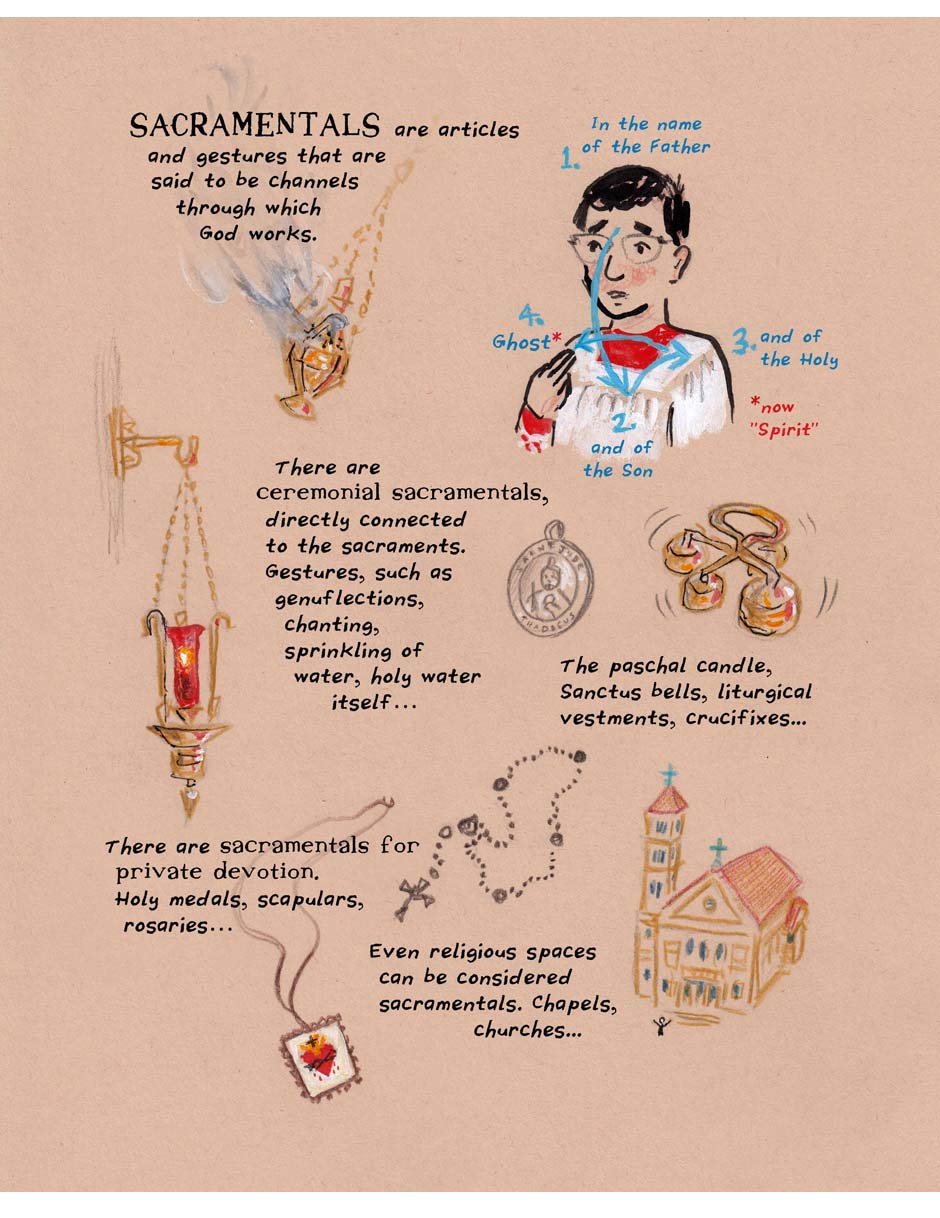 SACRAMENTALS are articles
and gestures that are
said to be channels
through which
God works.
1. In the name
of the Father
2.
and of
the Son
3. and of
the Holy
4.
Ghost*
*now
"Spirit"
There are
ceremonial sacramentals,
directly connected
to the sacraments.
Gestures, such as
genuflections,
chanting,
sprinkling of
water, holy water
itself...
SAINT JUDE
THADDEUS
The paschal candle,
Sanctus bells, liturgical
vestments, crucifixes...
There are sacramentals for
private devotion.
Holy medals, scapulars,
rosaries...
Even religious spaces
can be considered
sacramentals. Chapels,
churches...